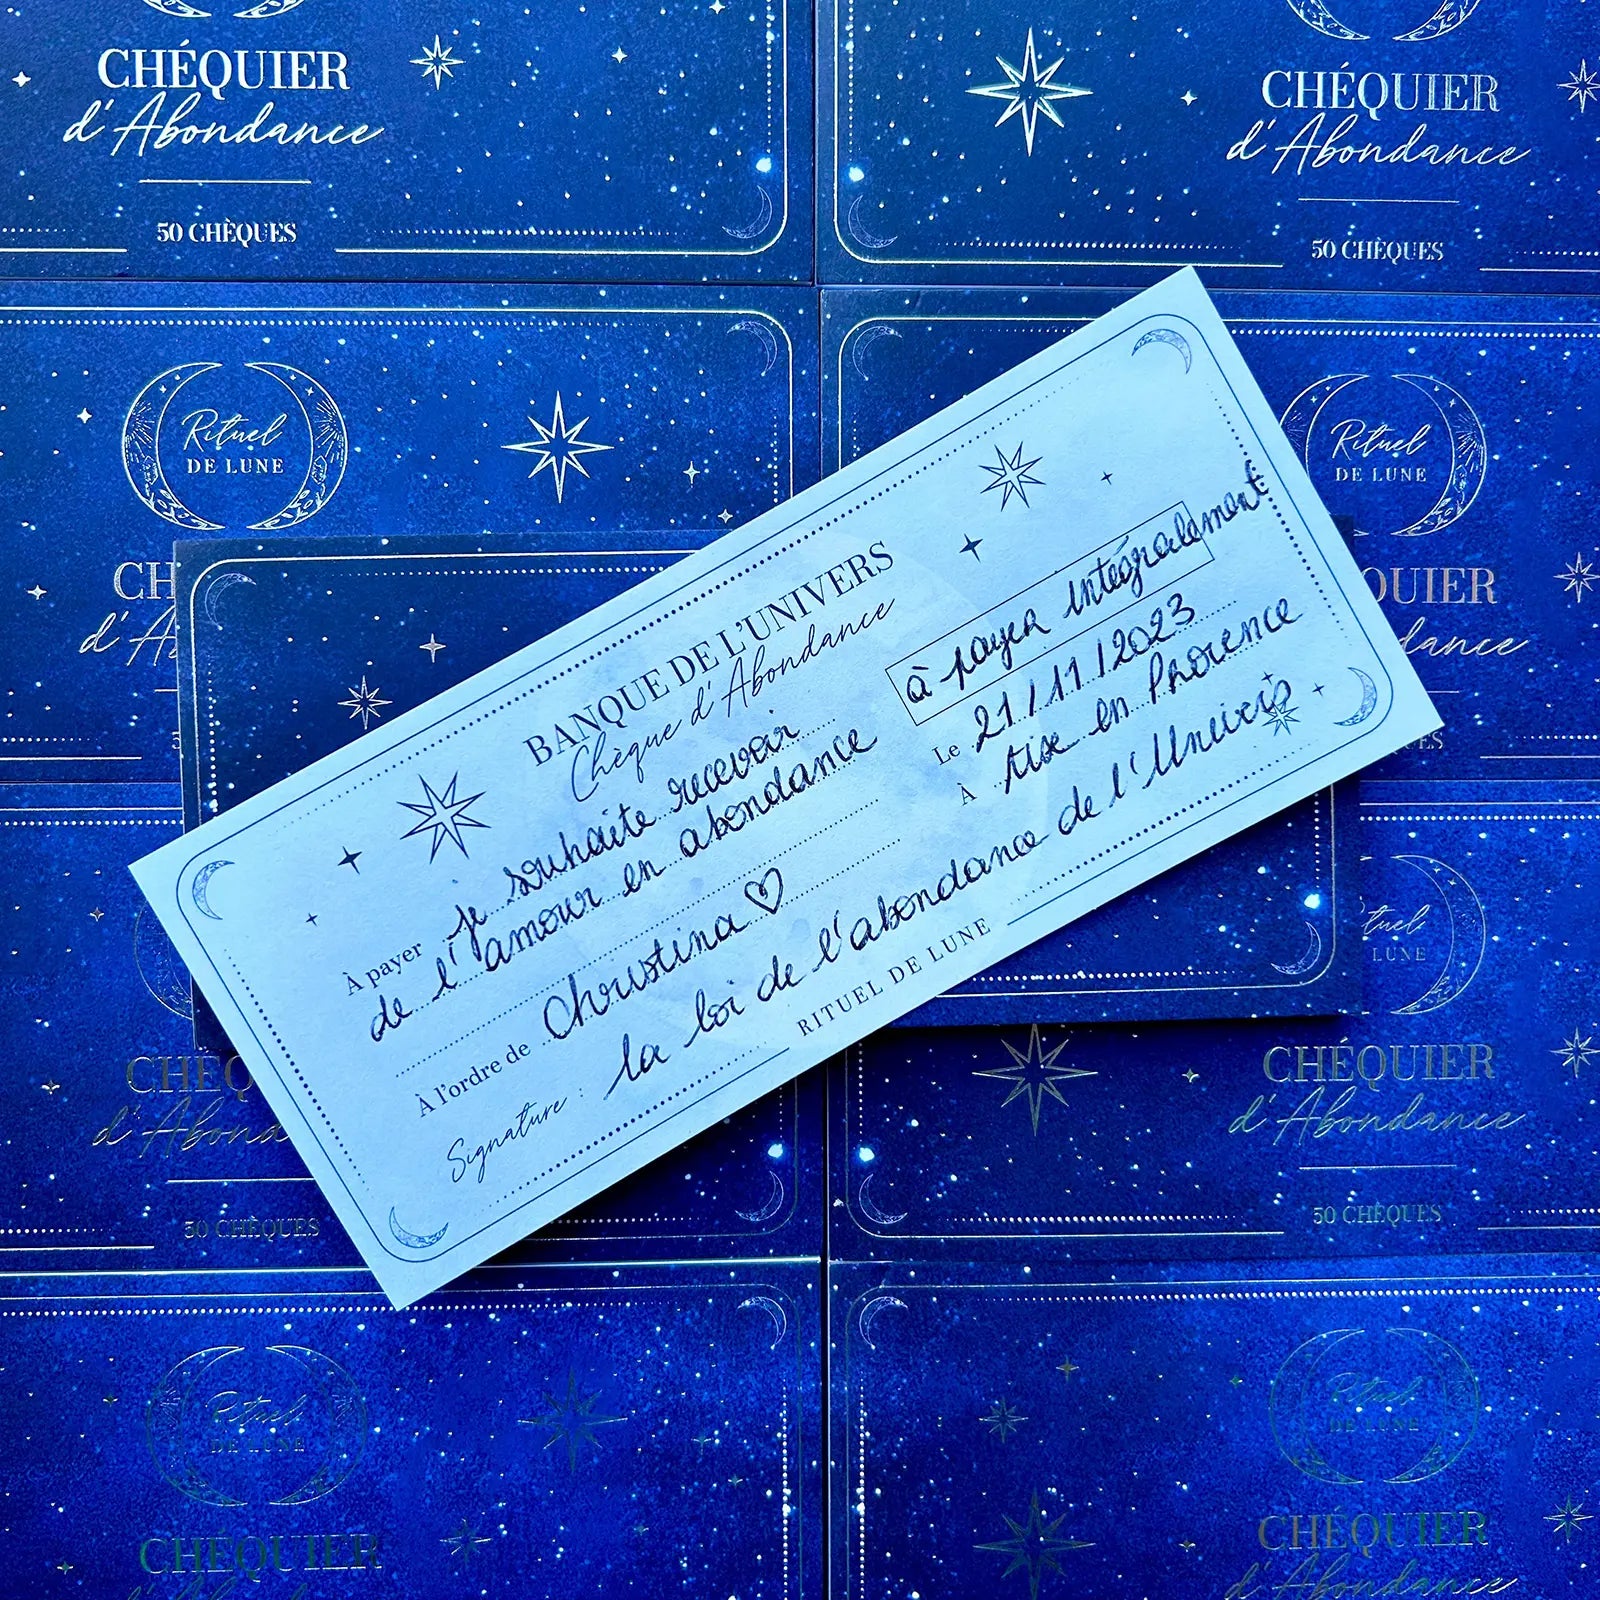 CHÉQUIER
d'Abondance
50 CHÈQUES
CHÉQUIER
d'Abondance
50 CHÈQUES
Rituel
DE LUNE
CH
d'A
Rituel
DE LUNE
QUIER
ondance
BANQUE DE L'UNIVERS
Chèque d'Abondance
à payer intégralement
Le 21/11/2023
À Aix en Provence
À payer je souhaite recevoir
de l'amour en abondance
À l'ordre de Christina ♡
Signature : la loi de l'abondance de l'Univers
RITUEL DE LUNE
tuel
LUNE
CHÉQ
d'Abonda
50 CHÈQUES
CHÉQUIER
d'Abondance
50 CHÈQUES
Rituel
DE LUNE
CHÉQUIER
Rituel
DE LUNE
CHÉQUIER
d'Abondance